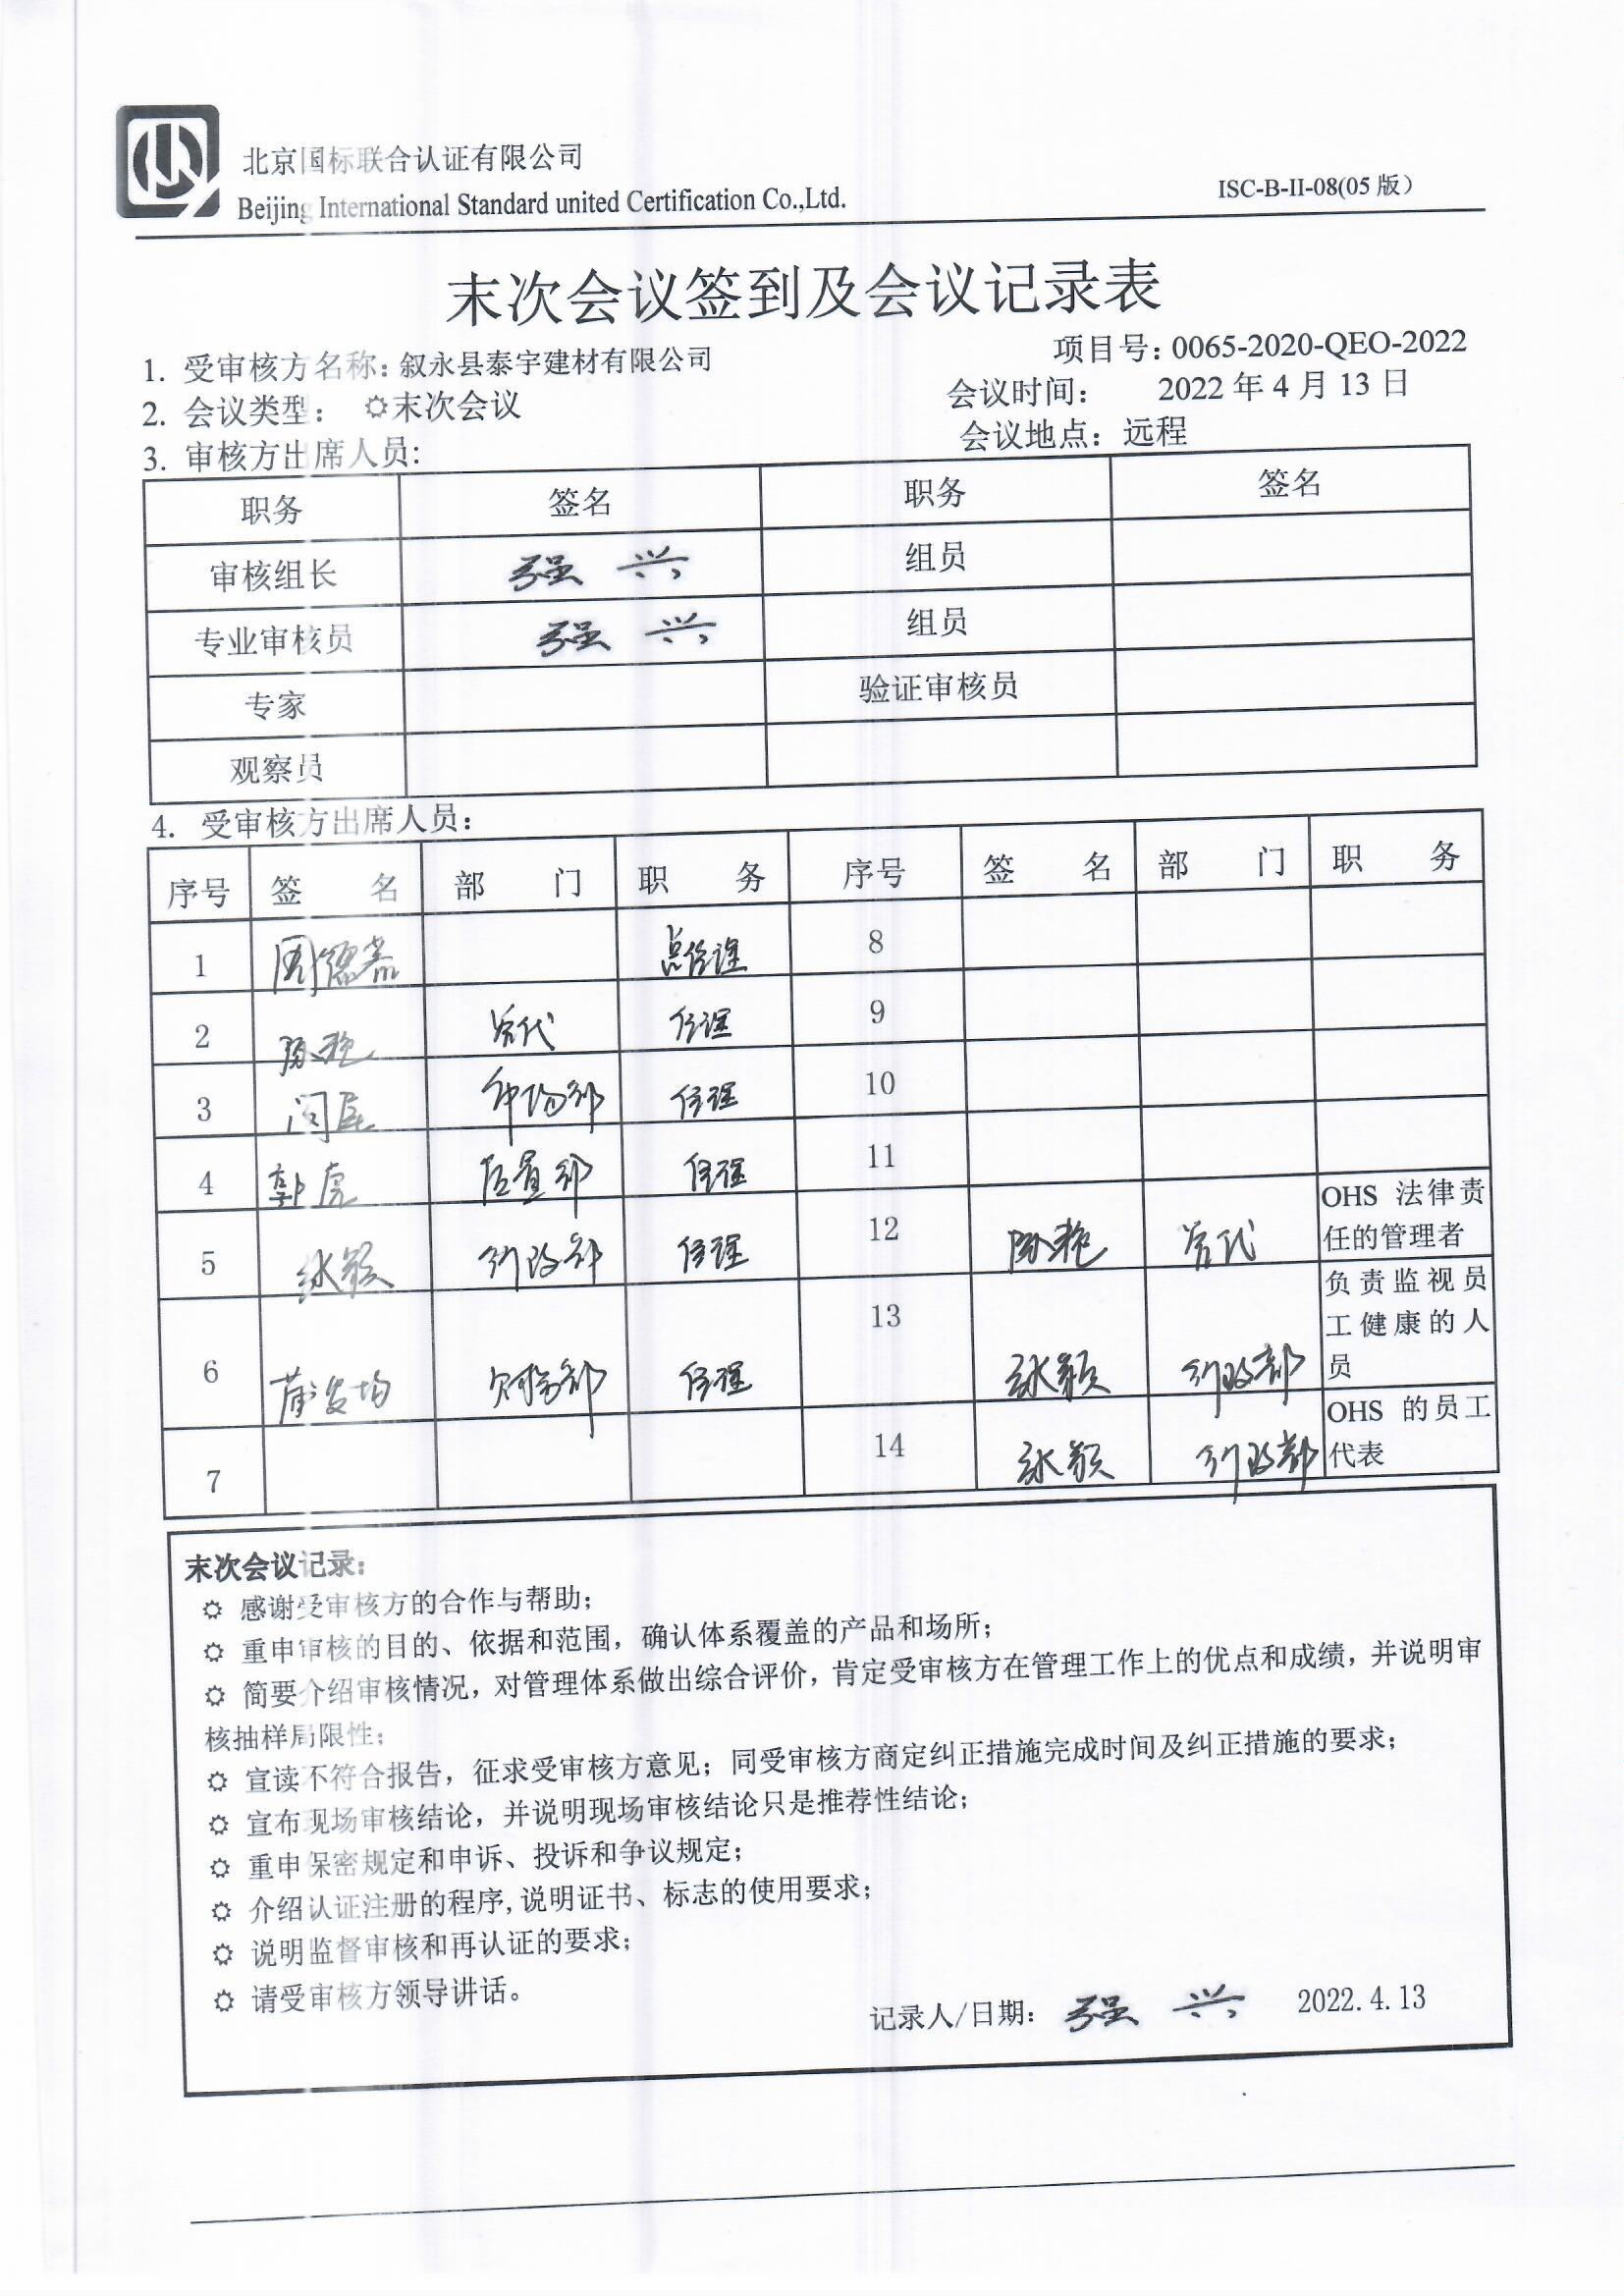 北京国标联合认证有限公司
Beijing International Standard united Certification Co.,Ltd.
ISC-B-II-08(05 版)
末次会议签到及会议记录表
项目号: 0065-2020-QEO-2022
1. 受审核方名称: 叙永县泰宇建材有限公司
会议时间: 2022 年 4 月 13 日
2. 会议类型: ☼末次会议
会议地点: 远程
3. 审核方出席人员:
职务 签名 职务 签名
审核组长 强 兴 组员
专业审核员 强 兴 组员
专家 验证审核员
观察员
4. 受审核方出席人员:
序号 签 名 部 门 职 务 序号 签 名 部 门 职 务
1 总经理 8
2 陈艳 管代 经理 9
3 市场部 经理 10
4 郭虎 质量部 经理 11
5 张颖 行政部 经理 12 陈艳 管代 OHS 法律责任的管理者
6 财务部 经理 13 张颖 行政部 负责监视员工健康的人员
7 14 张颖 行政部 OHS 的员工代表
末次会议记录:
☼ 感谢受审核方的合作与帮助;
☼ 重申审核的目的、依据和范围，确认体系覆盖的产品和场所;
☼ 简要介绍审核情况，对管理体系做出综合评价，肯定受审核方在管理工作上的优点和成绩，并说明审
核抽样局限性;
☼ 宣读不符合报告，征求受审核方意见；同受审核方商定纠正措施完成时间及纠正措施的要求;
☼ 宣布现场审核结论，并说明现场审核结论只是推荐性结论;
☼ 重申保密规定和申诉、投诉和争议规定;
☼ 介绍认证注册的程序, 说明证书、标志的使用要求;
☼ 说明监督审核和再认证的要求;
☼ 请受审核方领导讲话。
记录人/日期: 强 兴 2022.4.13